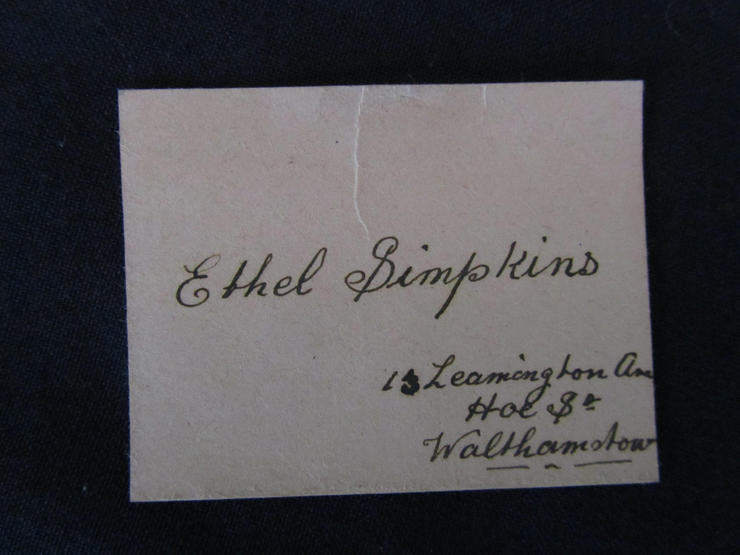 Ethel Simpkins
13 Leamington Av
Hoe St
Walthamstow